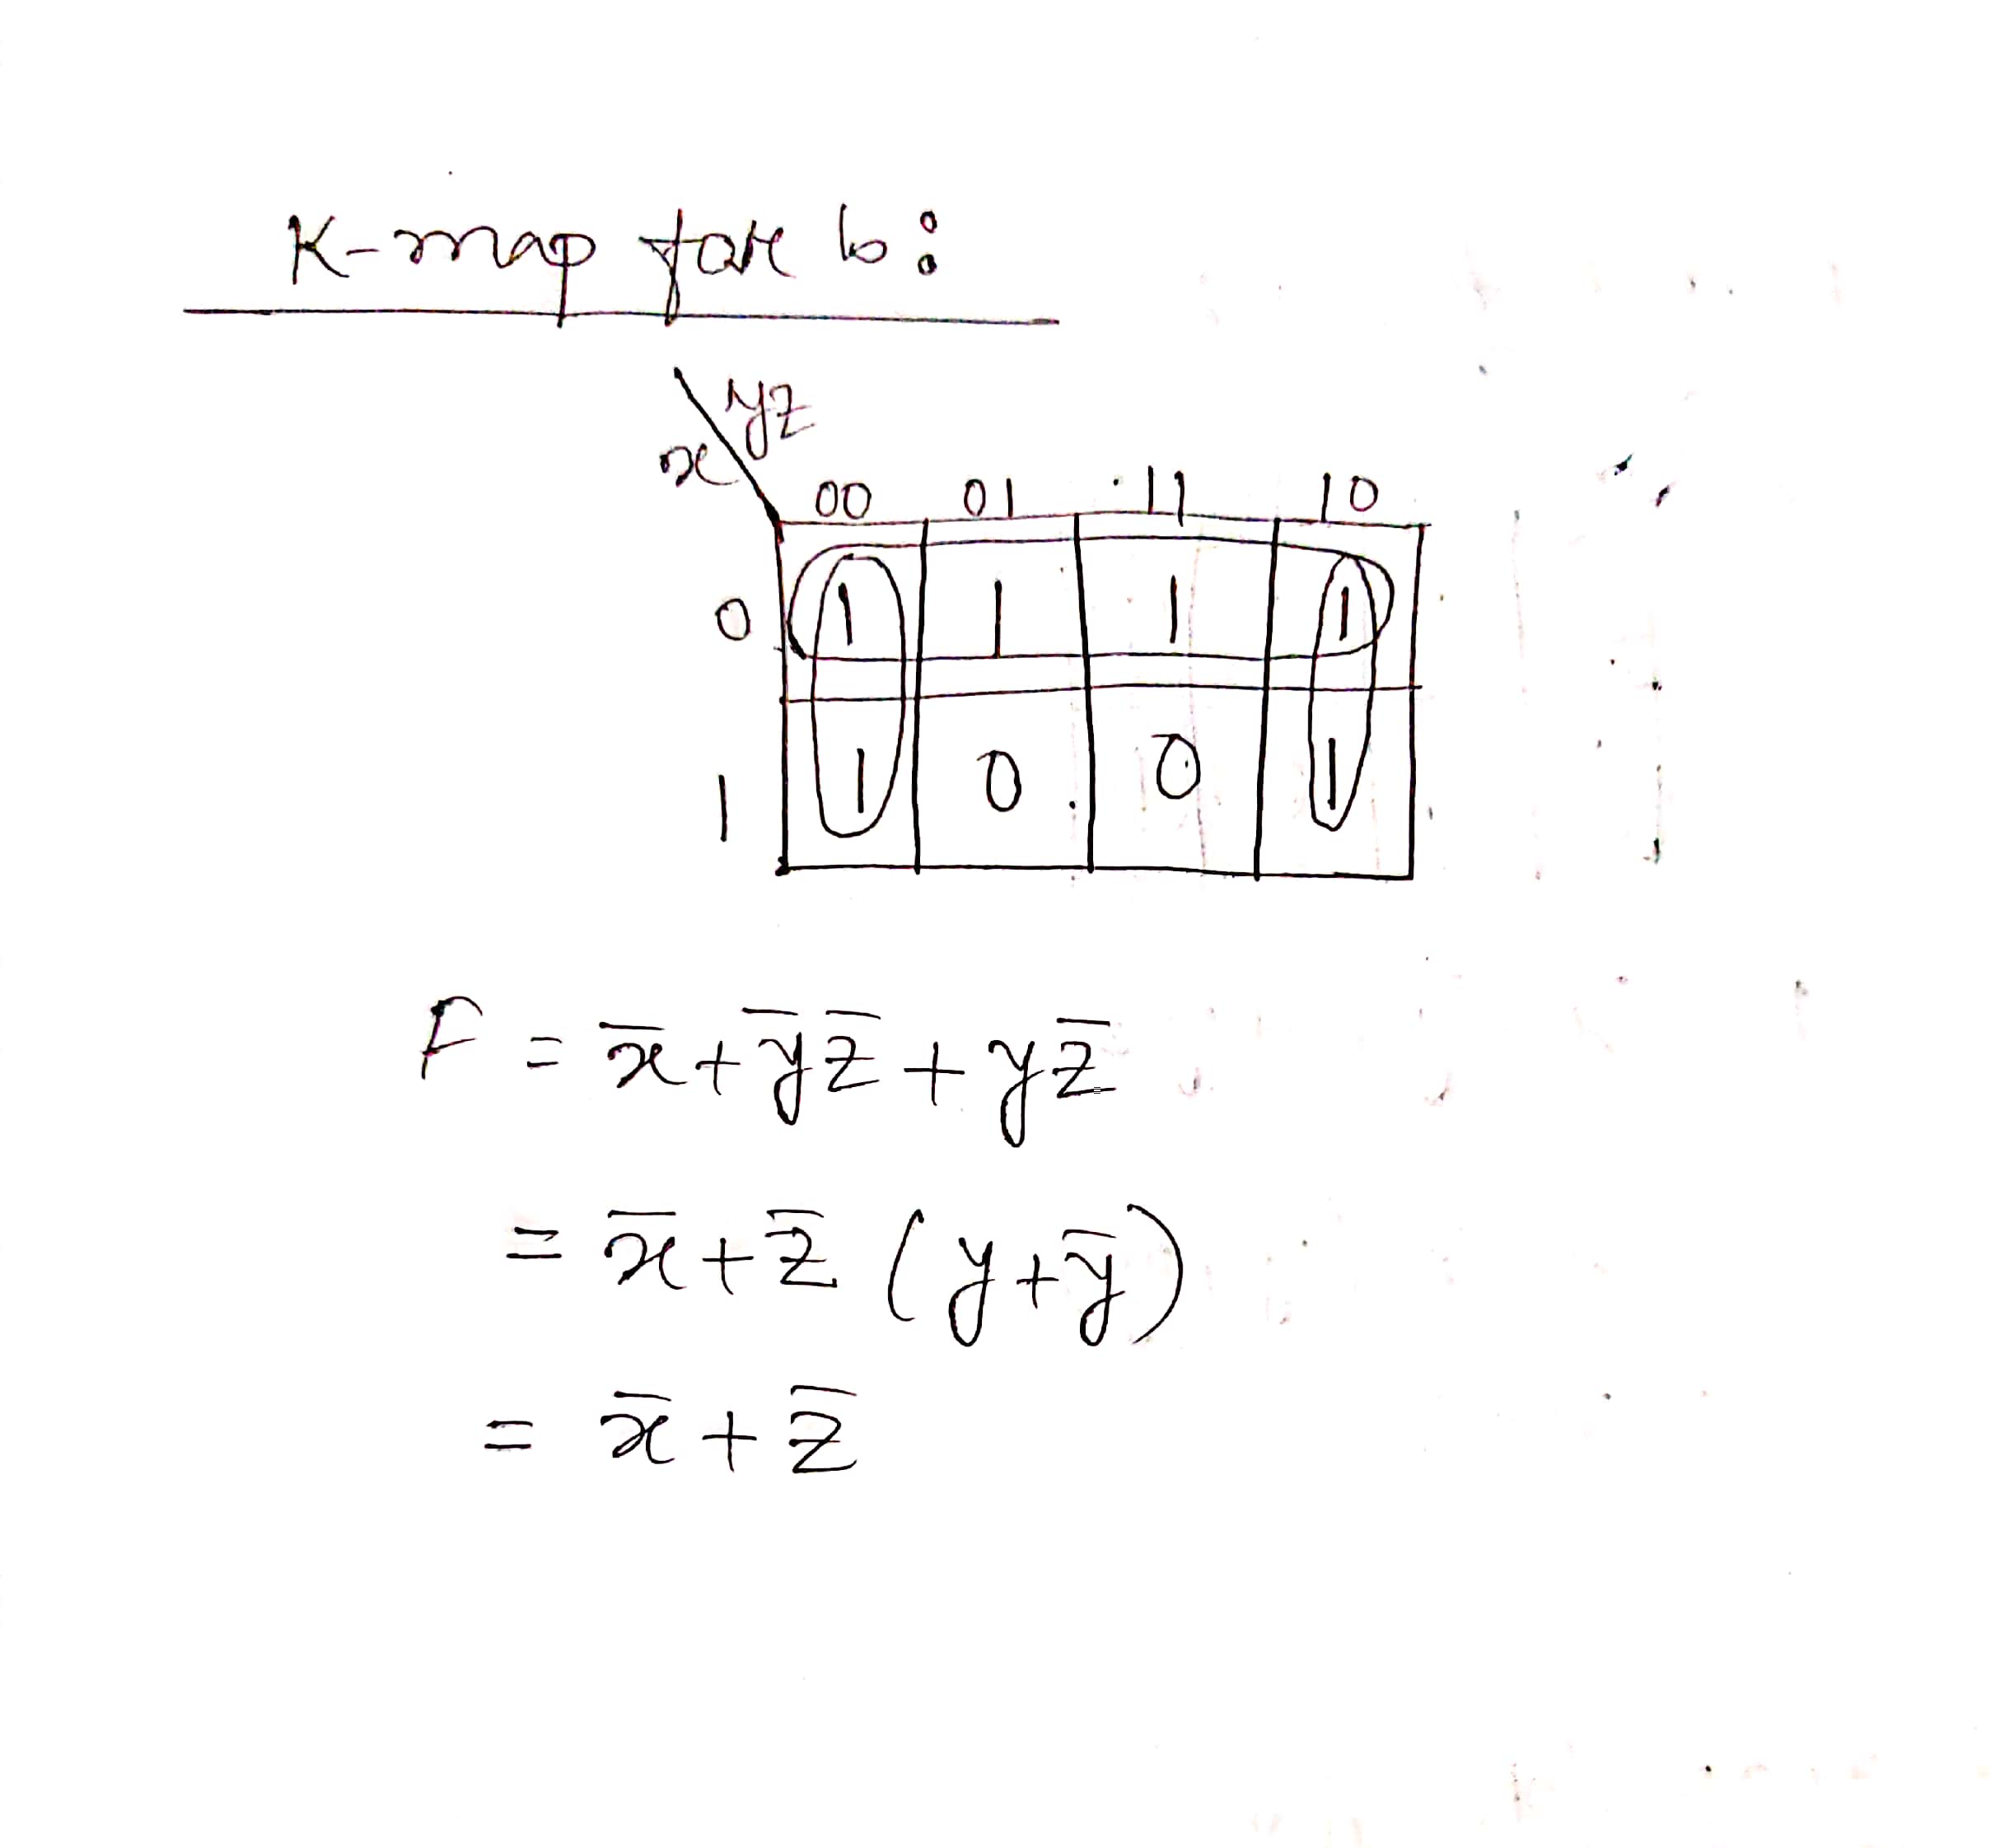 K-map for b:
yz
x
00 01 11 10
0 1 1 1 1
1 1 0 0 1
F = x̅ + y̅ z̅ + y z̅
= x̅ + z̅ (y + y̅)
= x̅ + z̅